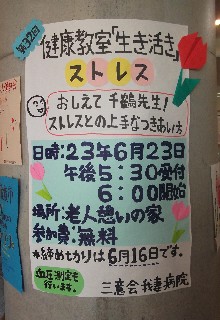 第32回
健康教室「生き活き」
ストレス
おしえて 千鶴先生！
ストレスとの上手なつきあい方
日時:23年6月23日
午後5:30受付
6:00開始
場所:老人憩いの家
参加費:無料
*締めきりは6月16日です。
血圧測定も
行います。
三意会我妻病院